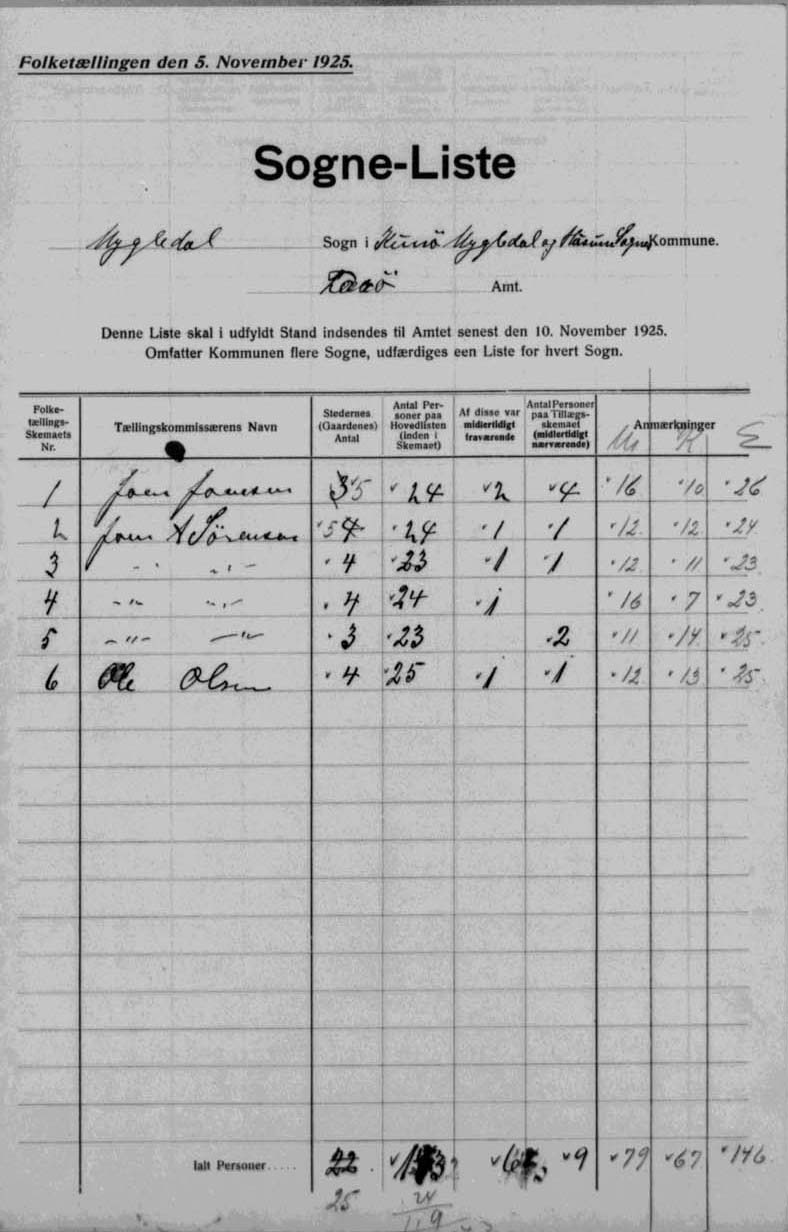 Folketællingen den 5. November 1925.
Sogne-Liste
Mygledal Sogn i Kunø Mygledal og Husum Sogne Kommune.
Færø Amt.
Denne Liste skal i udfyldt Stand indsendes til Amtet senest den 10. November 1925.
Omfatter Kommunen flere Sogne, udfærdiges een Liste for hvert Sogn.
Folke-
tællings-
Skemaets
Nr.
Tællingskommissærens Navn
Stedernes
(Gaardenes)
Antal
Antal Per-
soner paa
Hovedlisten
(inden i
Skemaet)
Af disse var
midlertidigt
fraværende
Antal Personer
paa Tillægs-
skemaet
(midlertidigt
nærværende)
Anmærkninger
M K E
1 Joen Joensen 3 5 24 2 4 16 10 26
2 Joen A Sørensen 5 4 24 1 1 12 12 24
3 - " - " - 4 23 1 1 12 11 23
4 - " - " - 4 24 1 16 7 23
5 - " - - " - 3 23 2 11 14 25
6 Ole Olsen 4 25 1 1 12 13 25
Ialt Personer..... 22 9 79 67 146
25